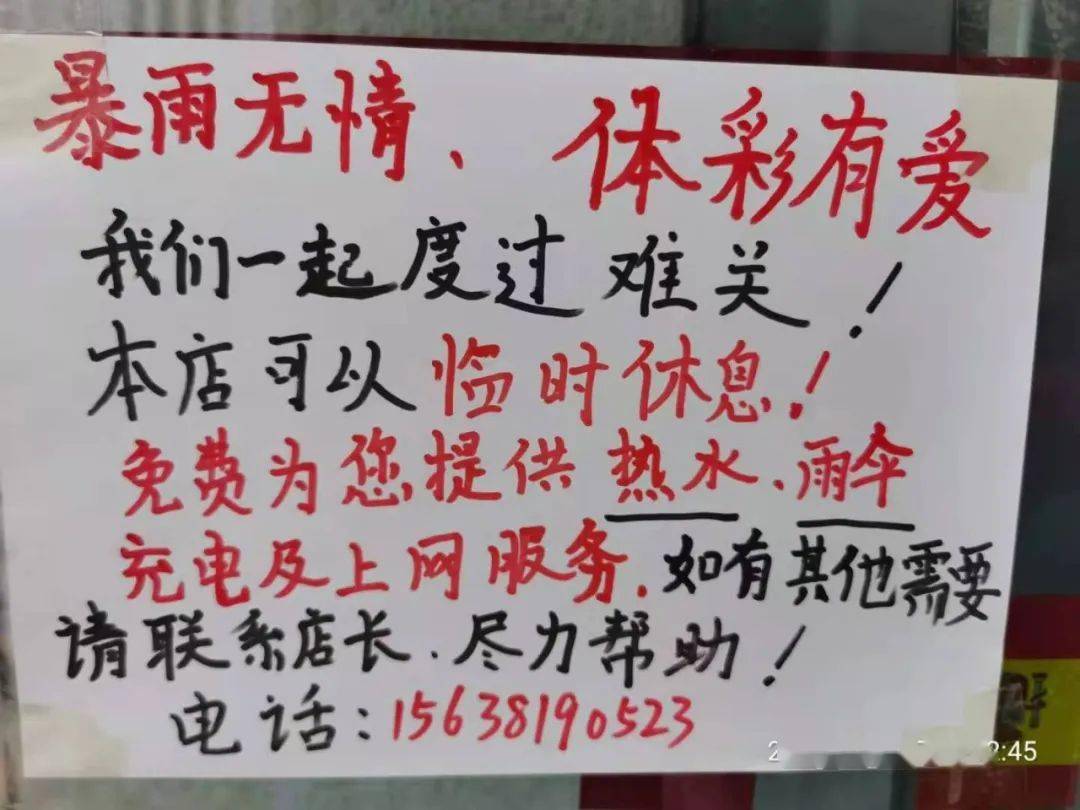 暴雨无情、体彩有爱
我们一起度过难关！
本店可以临时休息！
免费为您提供热水、雨伞
充电及上网服务.如有其他需要
请联系店长.尽力帮助！
电话:15638190523
2:45